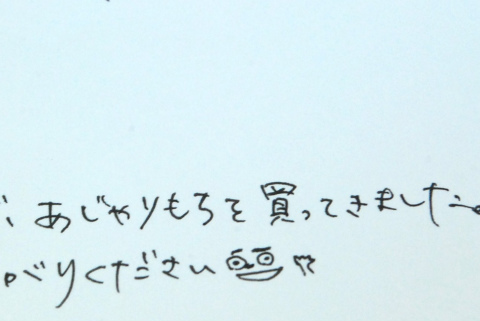 あじゃりもちを買ってきました。
べりください